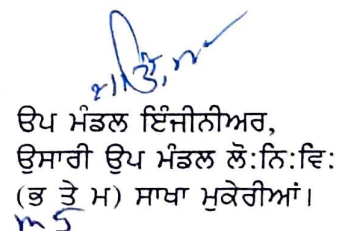 ਉਪ ਮੰਡਲ ਇੰਜੀਨੀਅਰ,
ਉਸਾਰੀ ਉਪ ਮੰਡਲ ਲੋ:ਨਿ:ਵਿ:
(ਭ ਤੇ ਮ) ਸਾਖਾ ਮੁਕੇਰੀਆਂ।